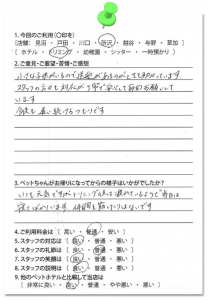 1.今回のご利用(○印を)
[店舗: 見沼 ・ 戸田 ・ 川口 ・ 所沢 ・ 越谷 ・ 与野 ・ 草加 ]
[ ホテル ・ トリミング ・ 幼稚園 ・ シッター ・ 一時預かり ]
2.ご意見・ご要望・苦情・ご感想
小さな子供がいるので送迎があるのがとても助かっています
スタッフの方も対応が丁寧で安心して毎回お願いして
います
今後も通い続けるつもりです
3.ペットちゃんがお帰りになってからの様子はいかがでしたか?
いつも元気ですがトリミング後は疲れているようで当日は
寝てばかりいます
4.ご利用料金は [ 高い ・ 普通 ・ 安い ]
5.スタッフの対応は [ 良い ・ 普通 ・ 悪い ]
6.スタッフの笑顔は [ 良い ・ 普通 ・ 悪い ]
7.スタッフの説明は [ 良い ・ 普通 ・ 悪い ]
8.スタッフの技術は [ 良い ・ 普通 ・ 悪い ]
9.他のペットホテルと比較して当店は
[ 非常に良い ・ 良い ・ 普通 ・ やや悪い ・ 悪い ]